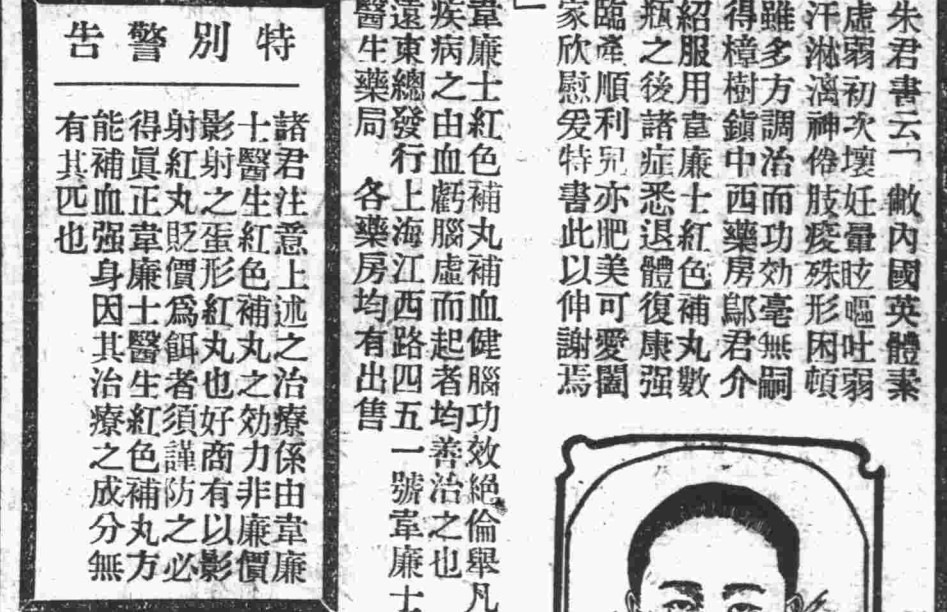 朱君書云「敝內國英體素
虛弱初次壞妊暈眩嘔吐弱
汗淋漓神倦肢疲殊形困頓
雖多方調治而功効毫無嗣
得樟樹鎮中西藥房鄔君介
紹服用韋廉士紅色補丸數
瓶之後諸症悉退體復康强
臨產順利兒亦肥美可愛闔
家欣慰爰特書此以伸謝焉
」
韋廉士紅色補丸補血健腦功效絶倫舉凡
疾病之由血虧腦虛而起者均善治之也
遠東總發行上海江西路四五一號韋廉士
醫生藥局 各藥房均有出售
特別警告
諸君注意上述之治療係由韋廉
士醫生紅色補丸之効力非廉價
影射之蛋形紅丸也好商有以影
射紅丸貶價爲餌者須謹防之必
得眞正韋廉士醫生紅色補丸方
能補血强身因其治療之成分無
有其匹也